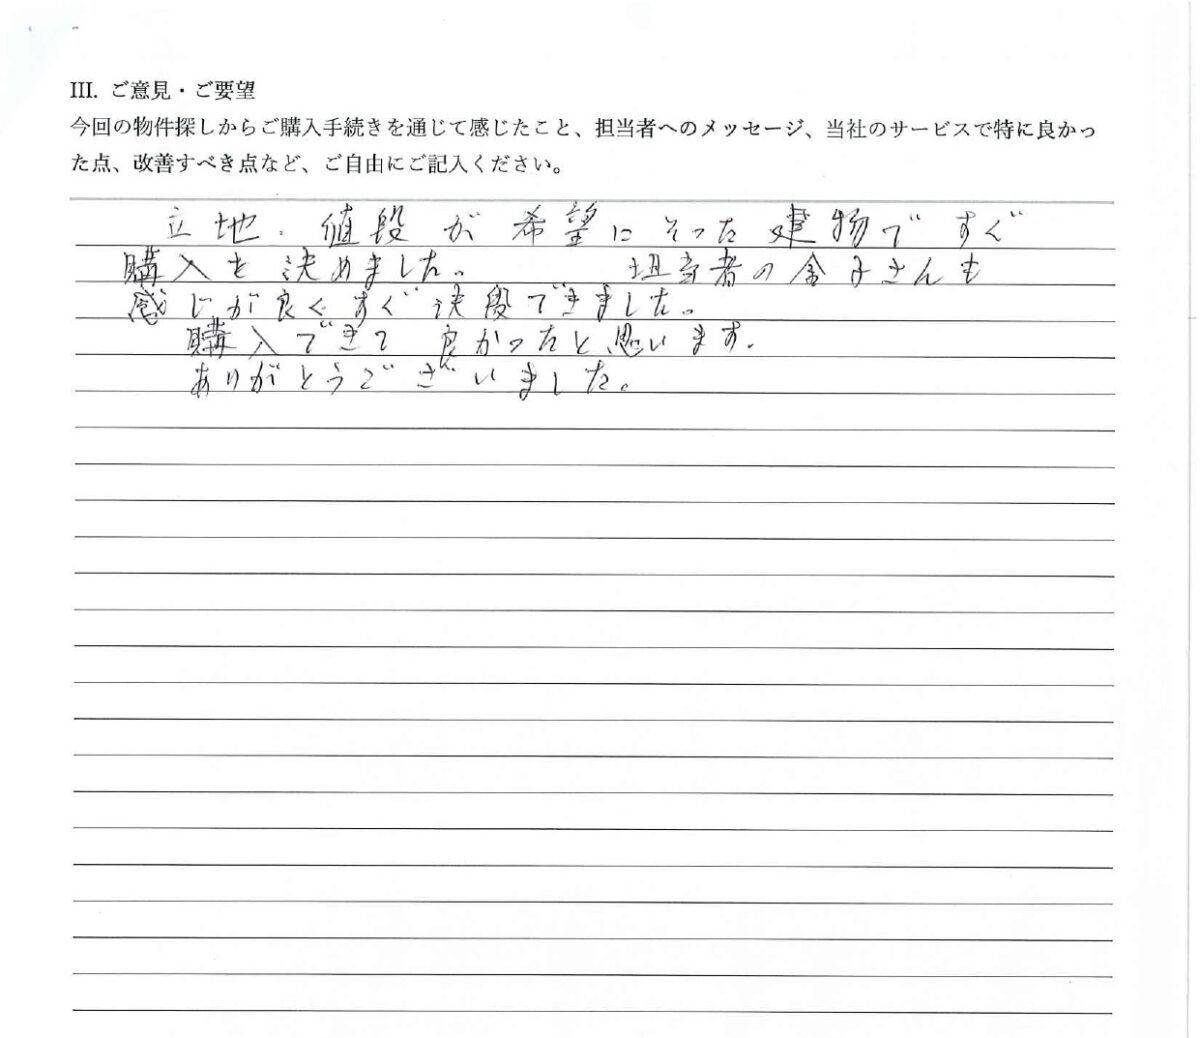 III. ご意見・ご要望
今回の物件探しからご購入手続きを通じて感じたこと、担当者へのメッセージ、当社のサービスで特に良かっ
た点、改善すべき点など、ご自由にご記入ください。
立地・値段が希望にそった建物ですぐ
購入を決めました。 担当者の金子さんも
感じが良くすぐ決段できました。
購入できて 良かったと思います.
ありがとうございました。